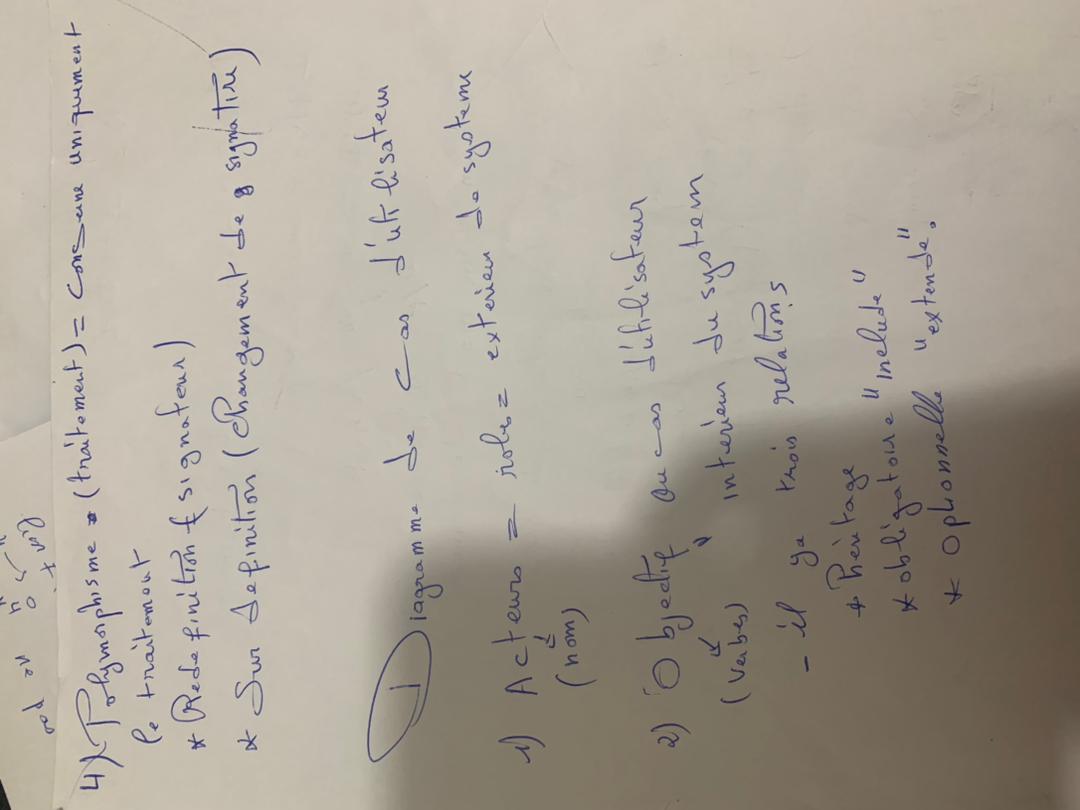 4) Polymorphisme = (traitement) = conserne uniquement
le traitement
* Redefinition (signateur)
* Sur definition (changement de signatire)
Diagramme de cas d'utilisateur
1) Acteurs = roles = exterieur de systeme
(nom)
2) Objectif ou cas d'utilisateur
(verbes) interieur du system
- il ya trois relations
* héritage
* obligatoire "include"
* Optionnelle "extende".